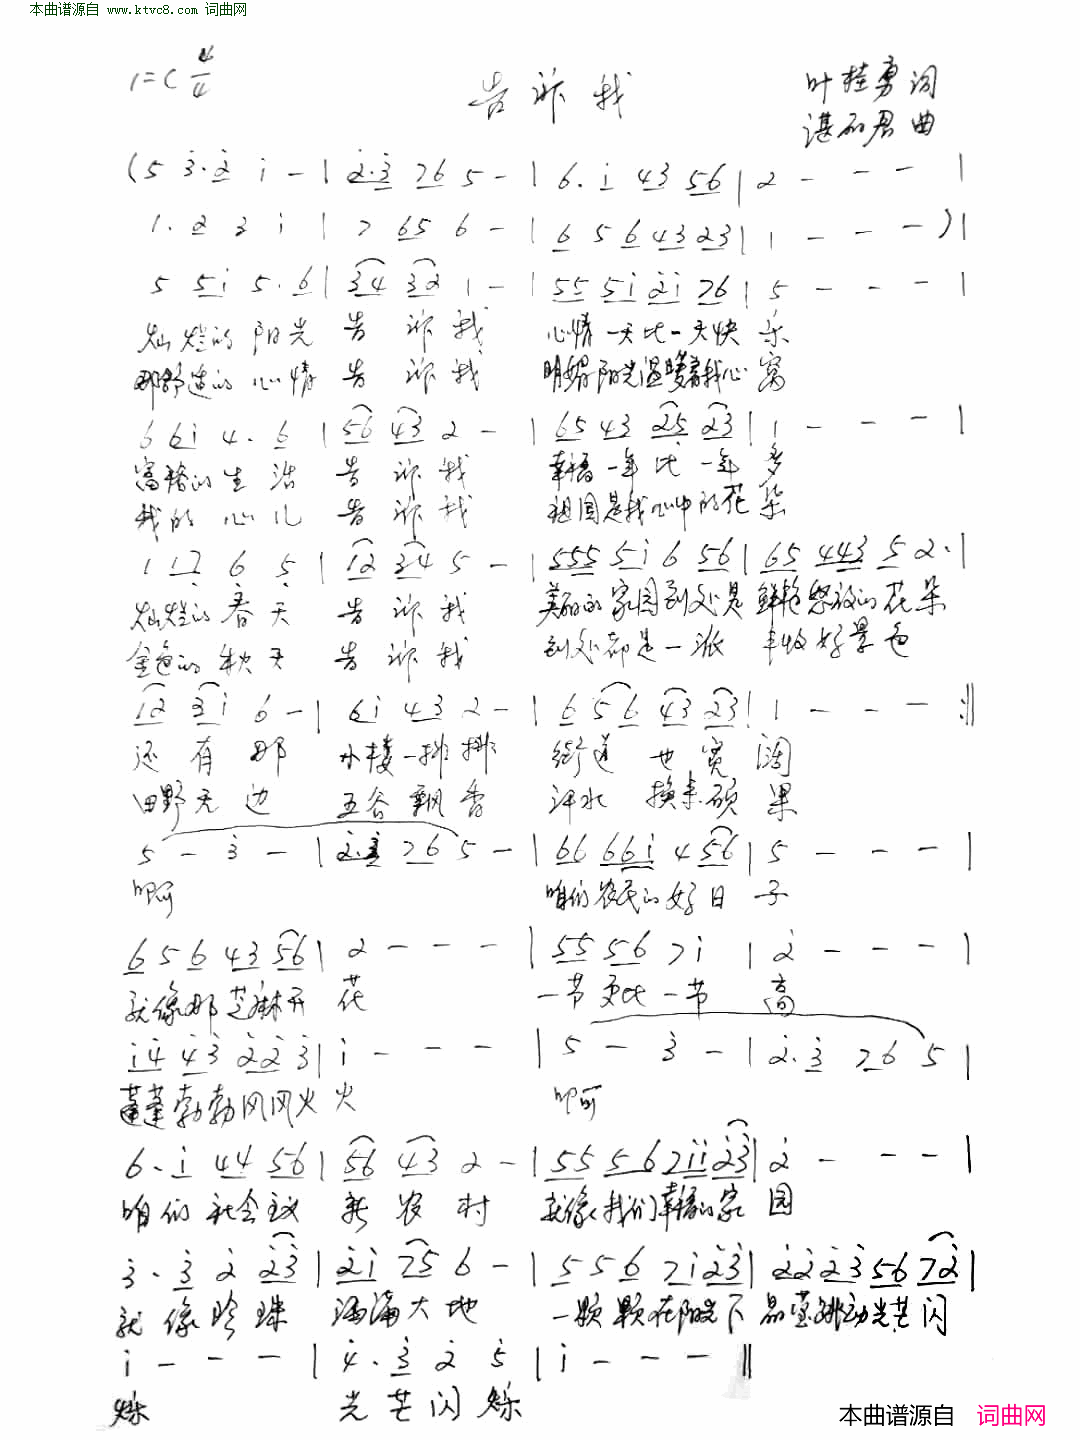 本曲谱源自 www.ktvc8.com 词曲网
1=C 4/4
告诉我
叶桂勇词
湛 君曲
(5 3·2 i - | 2·3 76 5 - | 6·i 43 56 | 2 - - - |
1·2 3 i | 7 65 6 - | 6 5 6 43 23 | 1 - - - )|
5 5i 5·6 | 34 32 1 - | 55 5i 2i 76 | 5 - - - |
灿烂的阳光 告诉我 心情一天比一天快乐
那舒适的心情 告诉我 明媚阳光温暖着我心窝
6 6i 4·6 | 56 43 2 - | 65 43 25 23 | 1 - - - |
富裕的生活 告诉我 幸福一年比一年多
我的心儿 告诉我 祖国是我心中的花朵
1 17 6 5 | 12 34 5 - | 555 5i 6 56 | 65 443 5 2·|
灿烂的春天 告诉我 美丽的家园到处是鲜艳怒放的花朵
金色的秋天 告诉我 到处都是一派 丰收好景色
12 3i 6 - | 6i 43 2 - | 6 5 6 43 23 | 1 - - - :‖
还有那 小楼一排排 街道也宽阔
田野无边 五谷飘香 汗水换来硕果
5 - 3 - | 2·3 76 5 - | 66 66i 4 56 | 5 - - - |
啊 咱们农民的好日子
6 5 6 43 56 | 2 - - - | 55 56 7i | 2 - - - |
就像那芝麻开花 一节更比一节高
i4 43 22 3 | i - - - | 5 - 3 - | 2·3 76 5 |
蓬蓬勃勃风风火火 啊
6·i 44 56 | 56 43 2 - | 55 56 7ii 23 | 2 - - - |
咱们社会主义 新农村 就像我们幸福的家园
3·3 2 23 | 2i 75 6 - | 5 5 6 7i 23 | 22 23 56 72 |
就像珍珠 洒满大地 一颗颗在阳光下 晶莹跳动光芒闪
i - - - | 4·3 2 5 | i - - - ‖
烁 光芒闪烁
本曲谱源自 词曲网